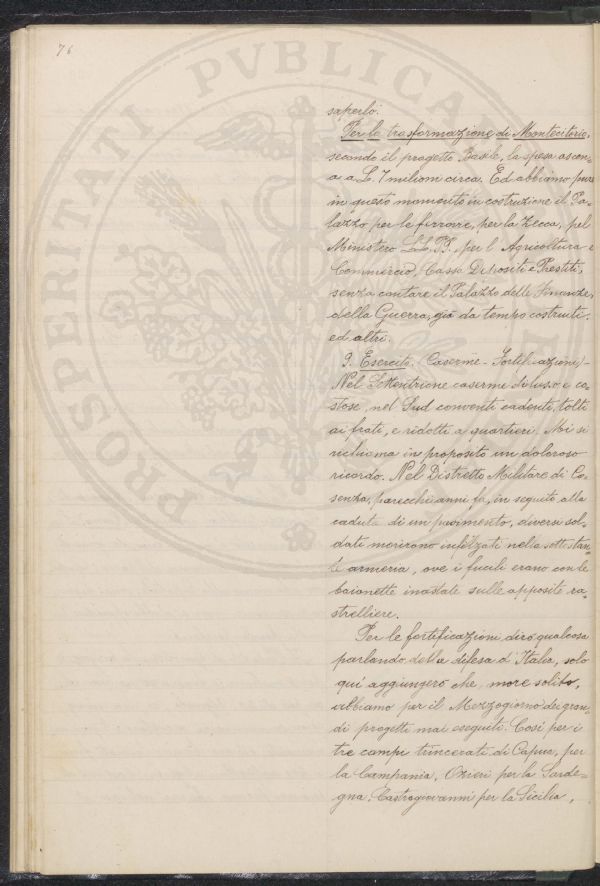 76
PROSPERITATI PVBLICAE
saperlo.
Per la trasformazione di Montecitorio,
secondo il progetto Basile, la spesa ascen=
a a L. 7 milioni circa. Ed abbiamo pure
in questo momento in costruzione il Pa-
lazzo per le ferrovie, per la Zecca, pel
Ministero LL.PP., per l'Agricoltura e
Commercio, Cassa Depositi e Prestiti,
senza contare il Palazzo delle Finanze,
della Guerra, già da tempo costruiti.
ed altri.
9. Esercito. Caserme - Fortificazioni -
Nel Settentrione caserme di lusso e co-
stose, nel Sud conventi cadenti, tolti
ai frati, e ridotti a quartieri. Mi si
richiama in proposito un doloroso
ricordo. Nel Distretto Militare di Co-
senza, parecchi anni fa, in seguito alla
caduta di un pavimento, diversi sol-
dati morirono infilzati nella sottostan=
te armeria, ove i fucili erano con le
baionette inastate sulle apposite ra=
strelliere.
Per le fortificazioni dirò qualcosa
parlando della difesa d'Italia, solo
qui aggiungerò che, more solito,
abbiamo per il Mezzogiorno dei gran-
di progetti mai eseguiti. Così per i
tre campi trincerati di Capua, per
la Campania, Ozieri per la Sarde=
gna, Castrogiovanni per la Sicilia,